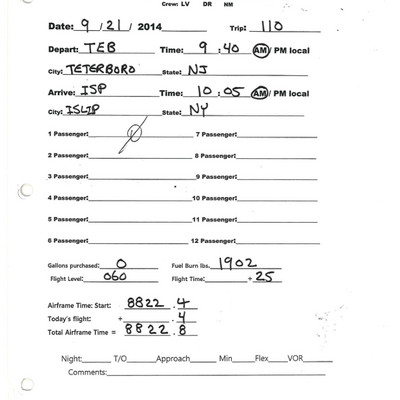 Crew: LV DR NM
Date: 9 / 21 / 2014 Trip: 110
Depart: TEB Time: 9 : 40 AM / PM local
City: TETERBORO State: NJ
Arrive: ISP Time: 10 : 05 AM / PM local
City: ISLIP State: NY
1 Passenger: 0 7 Passenger:
2 Passenger: 8 Passenger:
3 Passenger: 9 Passenger:
4 Passenger: 10 Passenger:
5 Passenger: 11 Passenger:
6 Passenger: 12 Passenger:
Gallons purchased: 0 Fuel Burn lbs. 1902
Flight Level: 060 Flight Time: + 25
Airframe Time: Start: 8822 .4
Today's flight: + .4
Total Airframe Time = 8822 .8
Night: T/O Approach Min Flex VOR
Comments: